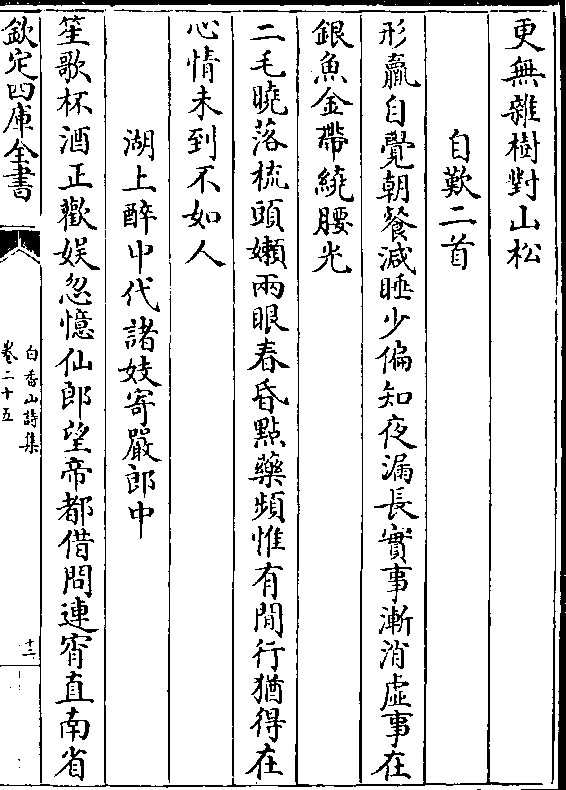 更無雜樹對山松
自歎二首
形羸自覺朝餐減睡少偏知夜漏長實事漸消虛事在
銀魚金帶繞腰光
二毛曉落梳頭嬾兩眼春昏點藥頻惟有閒行猶得在
心情未到不如人
湖上醉中代諸妓寄嚴郎中
笙歌杯酒正歡娱忽憶仙郎望帝都借問連宵直南省
欽定四庫全書
白香山詩集
卷二十五
十二